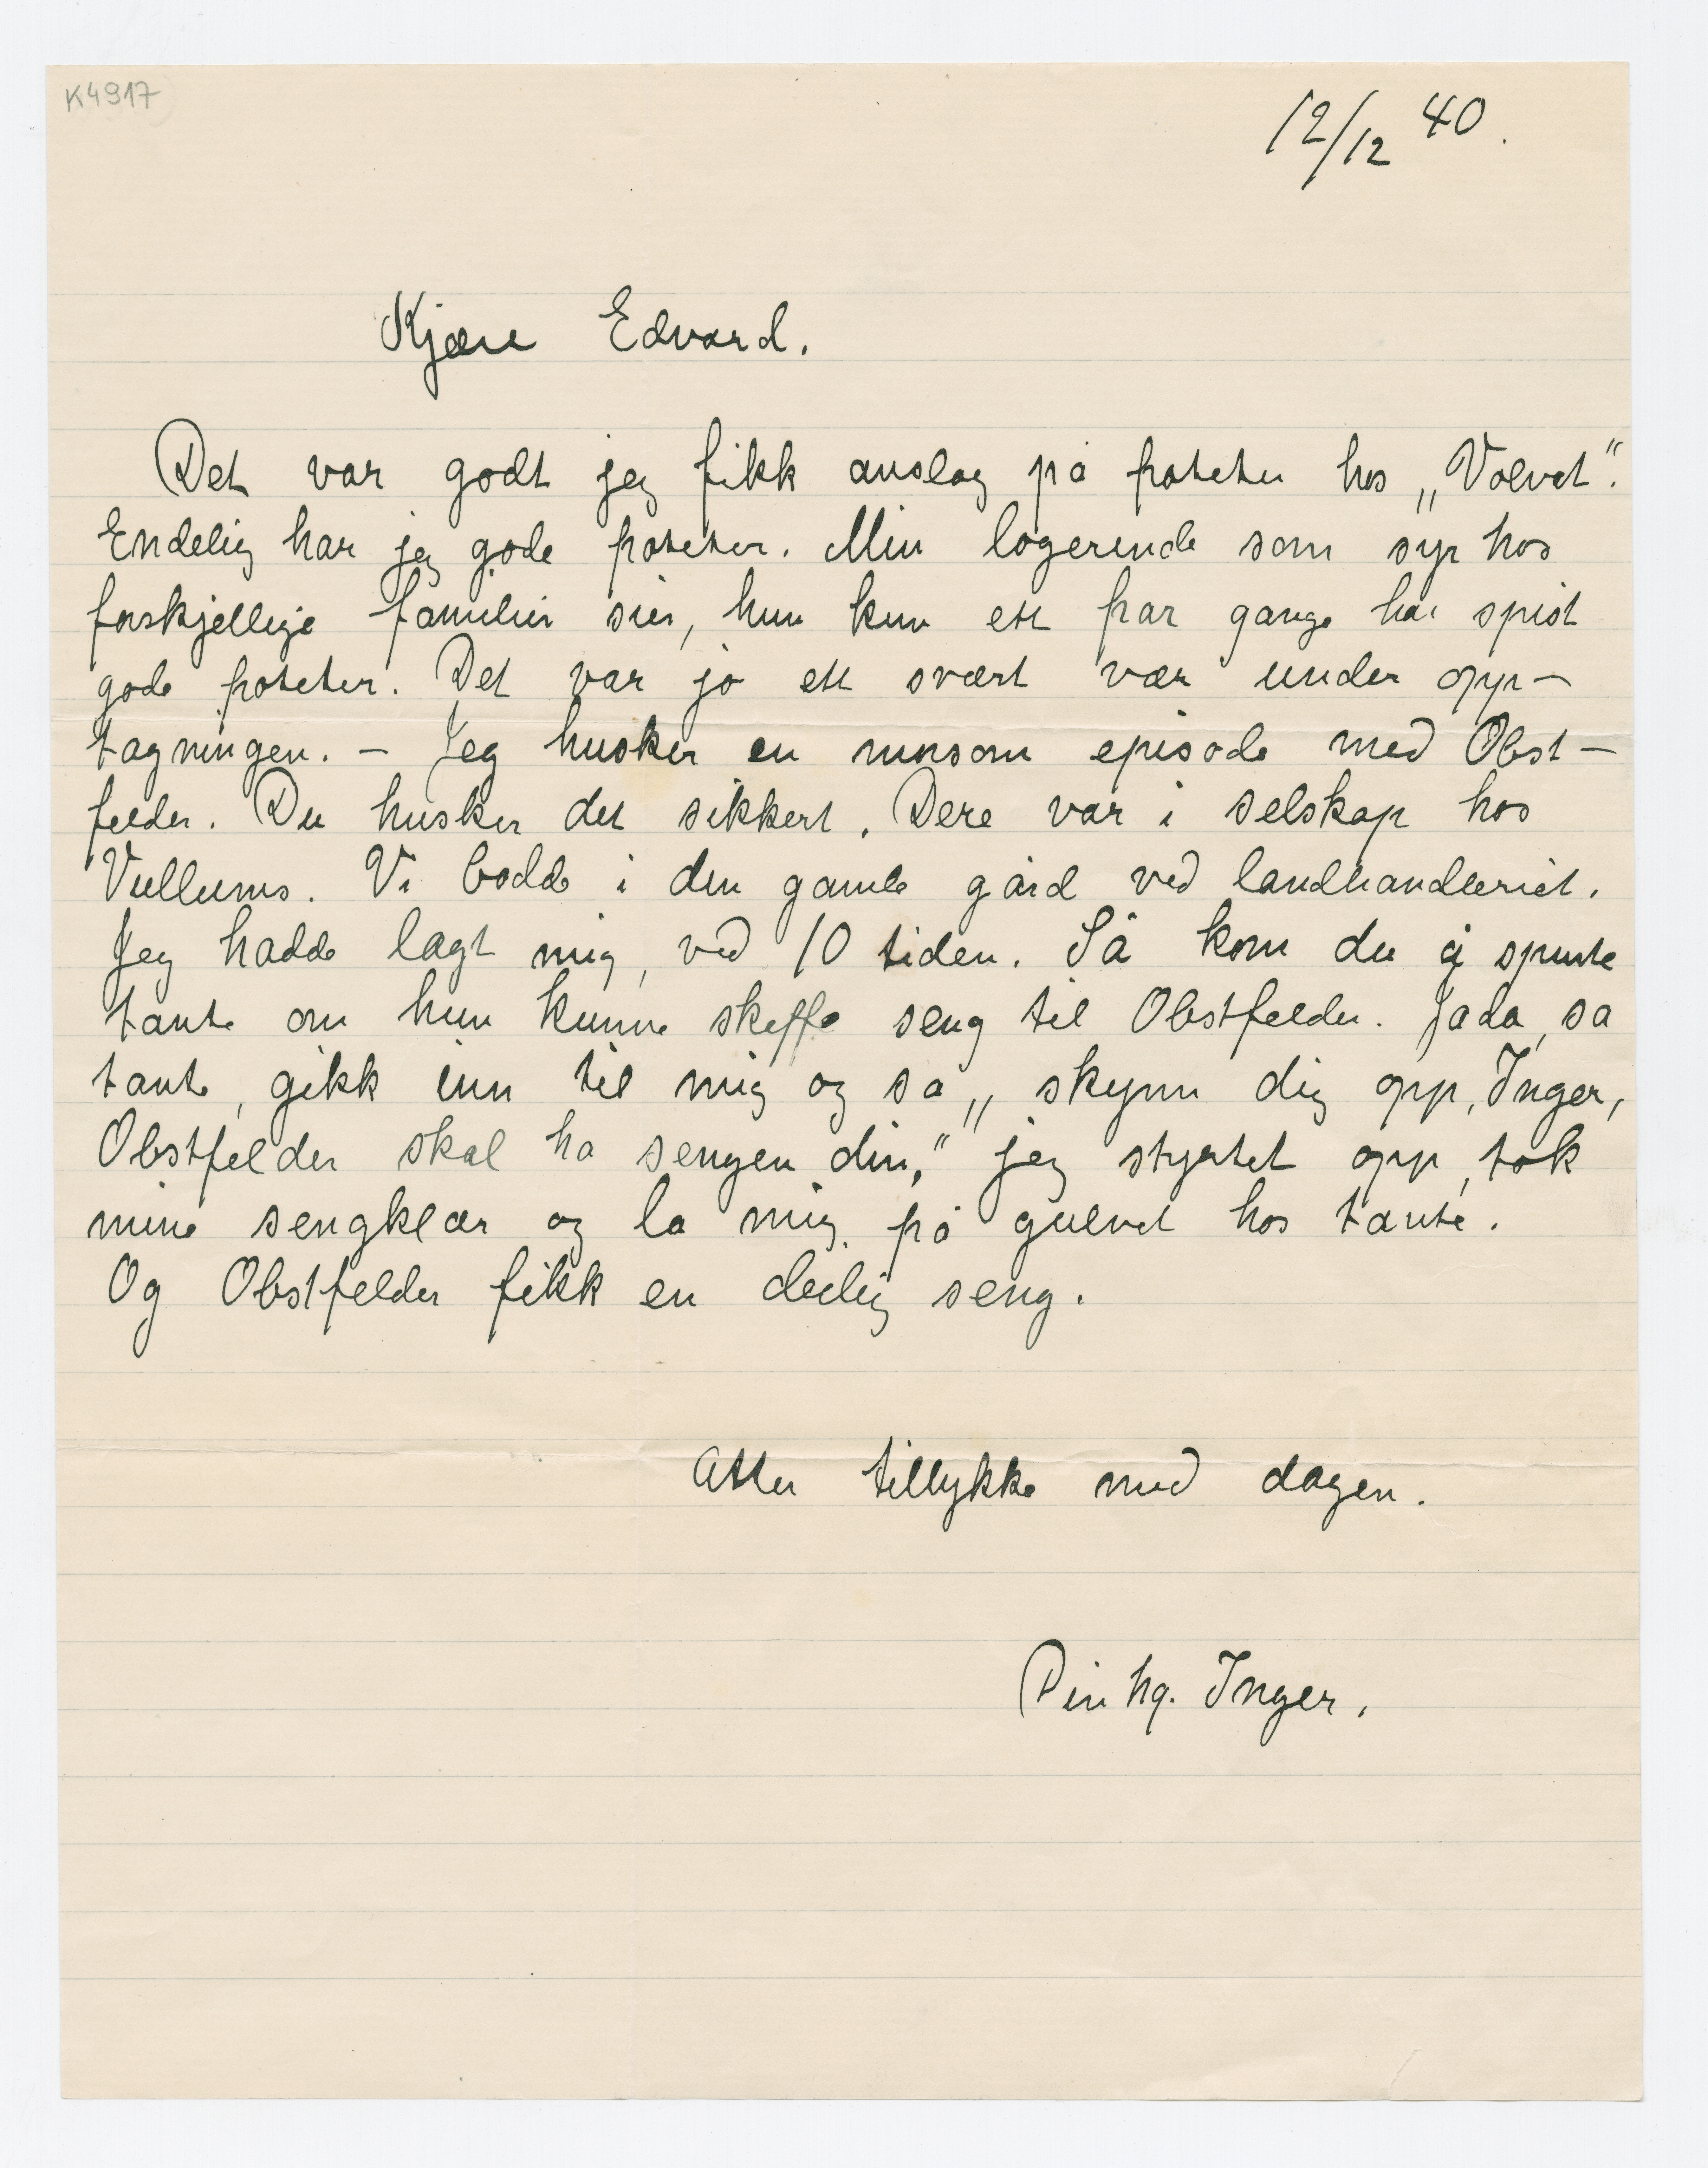 K4917
12/12 40.
Kjære Edvard.
Det var godt jeg fikk anslag på poteter hos „Volvat".
Endelig har jeg gode poteter. Min logerende som syr hos
forskjellige familier sier, hun kun ett par gange har spist
gode poteter. Det var jo ett svært vær under opp-
tagningen. – Jeg husker en morsom episode med Obst-
felder. Du husker det sikkert. Dere var i selskap hos
Vullums. Vi bodde i den gamle gård ved landhandleriet.
Jeg hadde lagt mig, ved 10 tiden. Så kom du å spurte
tante om hun kunne skaffe seng til Obstfelder. Jada, sa
tante, gikk inn til mig og sa „skynn dig opp, Inger,
Obstfelder skal ha sengen din," jeg styrtet opp, tok
mine sengklær og la mig på gulvet hos tante.
Og Obstfelder fikk en deilig seng.
Atter tillykke med dagen.
Din hg. Inger.